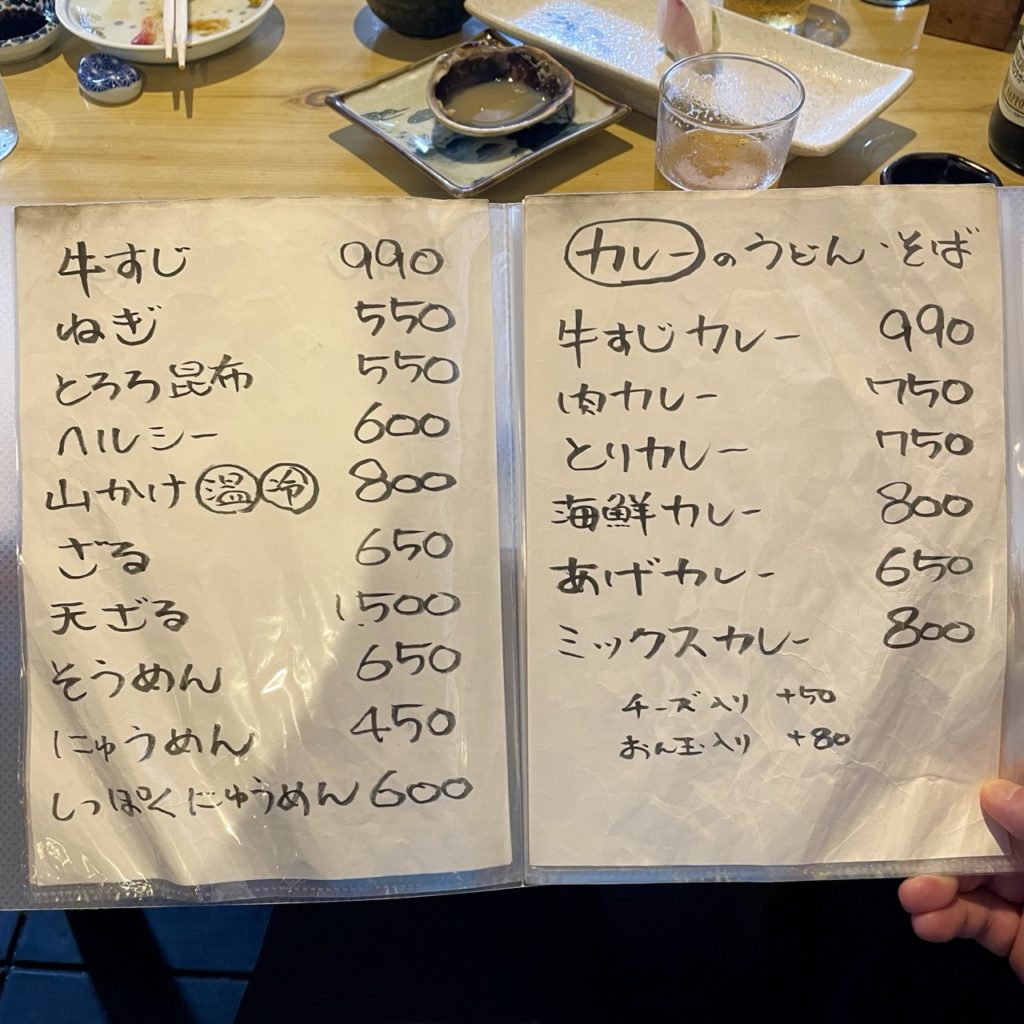 牛すじ 990
ねぎ 550
とろろ昆布 550
ヘルシー 600
山かけ 温 冷 800
ざる 650
天ざる 1,500
そうめん 650
にゅうめん 450
しっぽくにゅうめん 600
カレーのうどん・そば
牛すじカレー 990
肉カレー 750
とりカレー 750
海鮮カレー 800
あげカレー 650
ミックスカレー 800
チーズ入り +50
おん玉入り +80